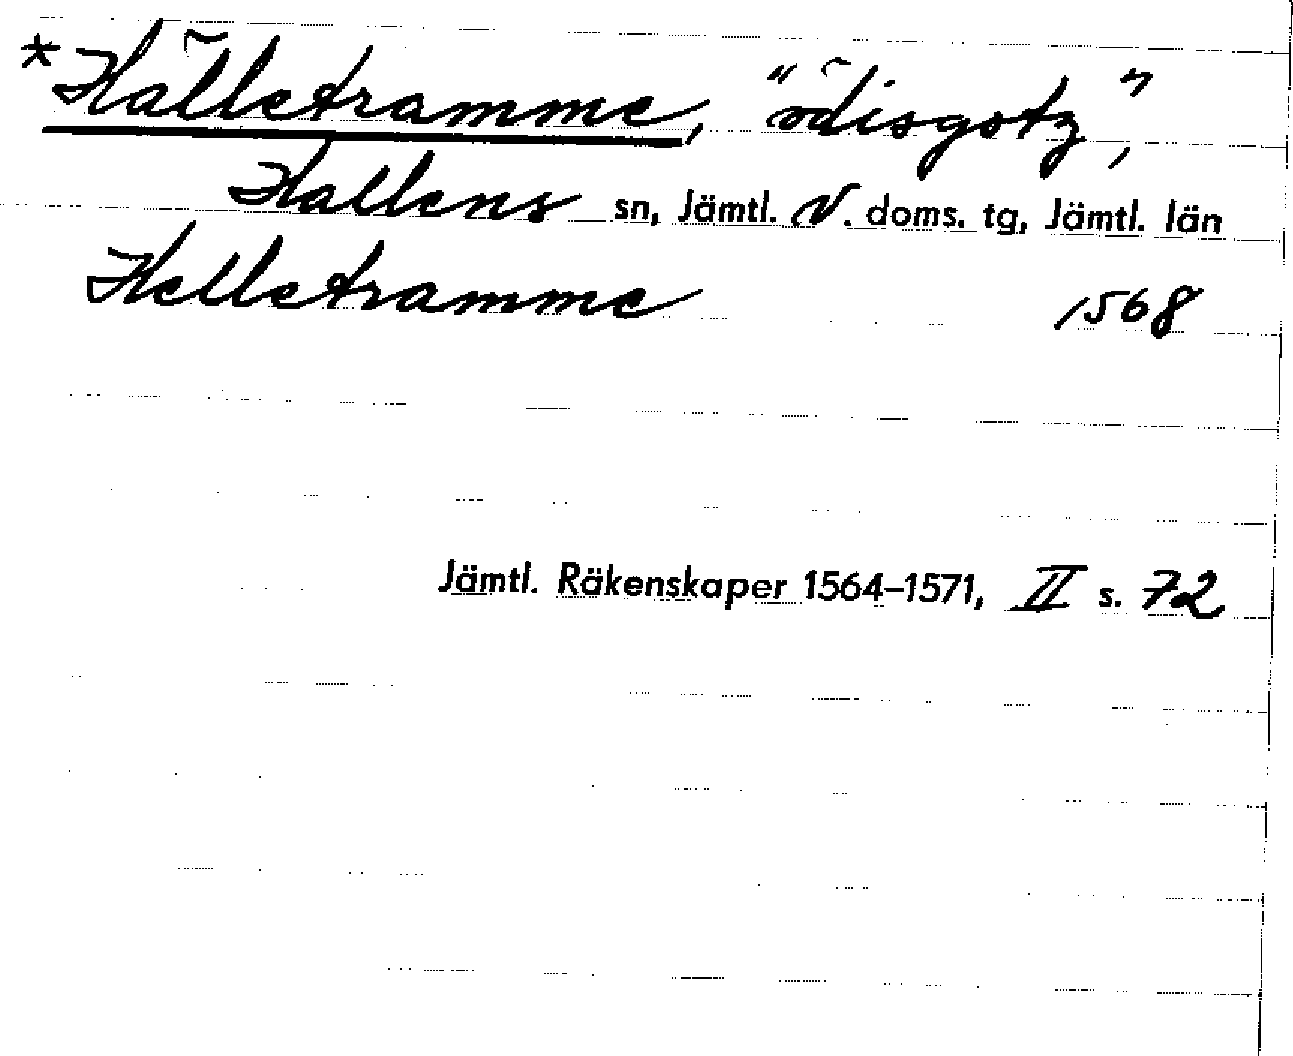 *Hälletramme, "ödisgotz",
Hallens sn, Jämtl. V. doms. tg, Jämtl. län
Helletramme 1568
Jämtl. Räkenskaper 1564–1571, II s. 72